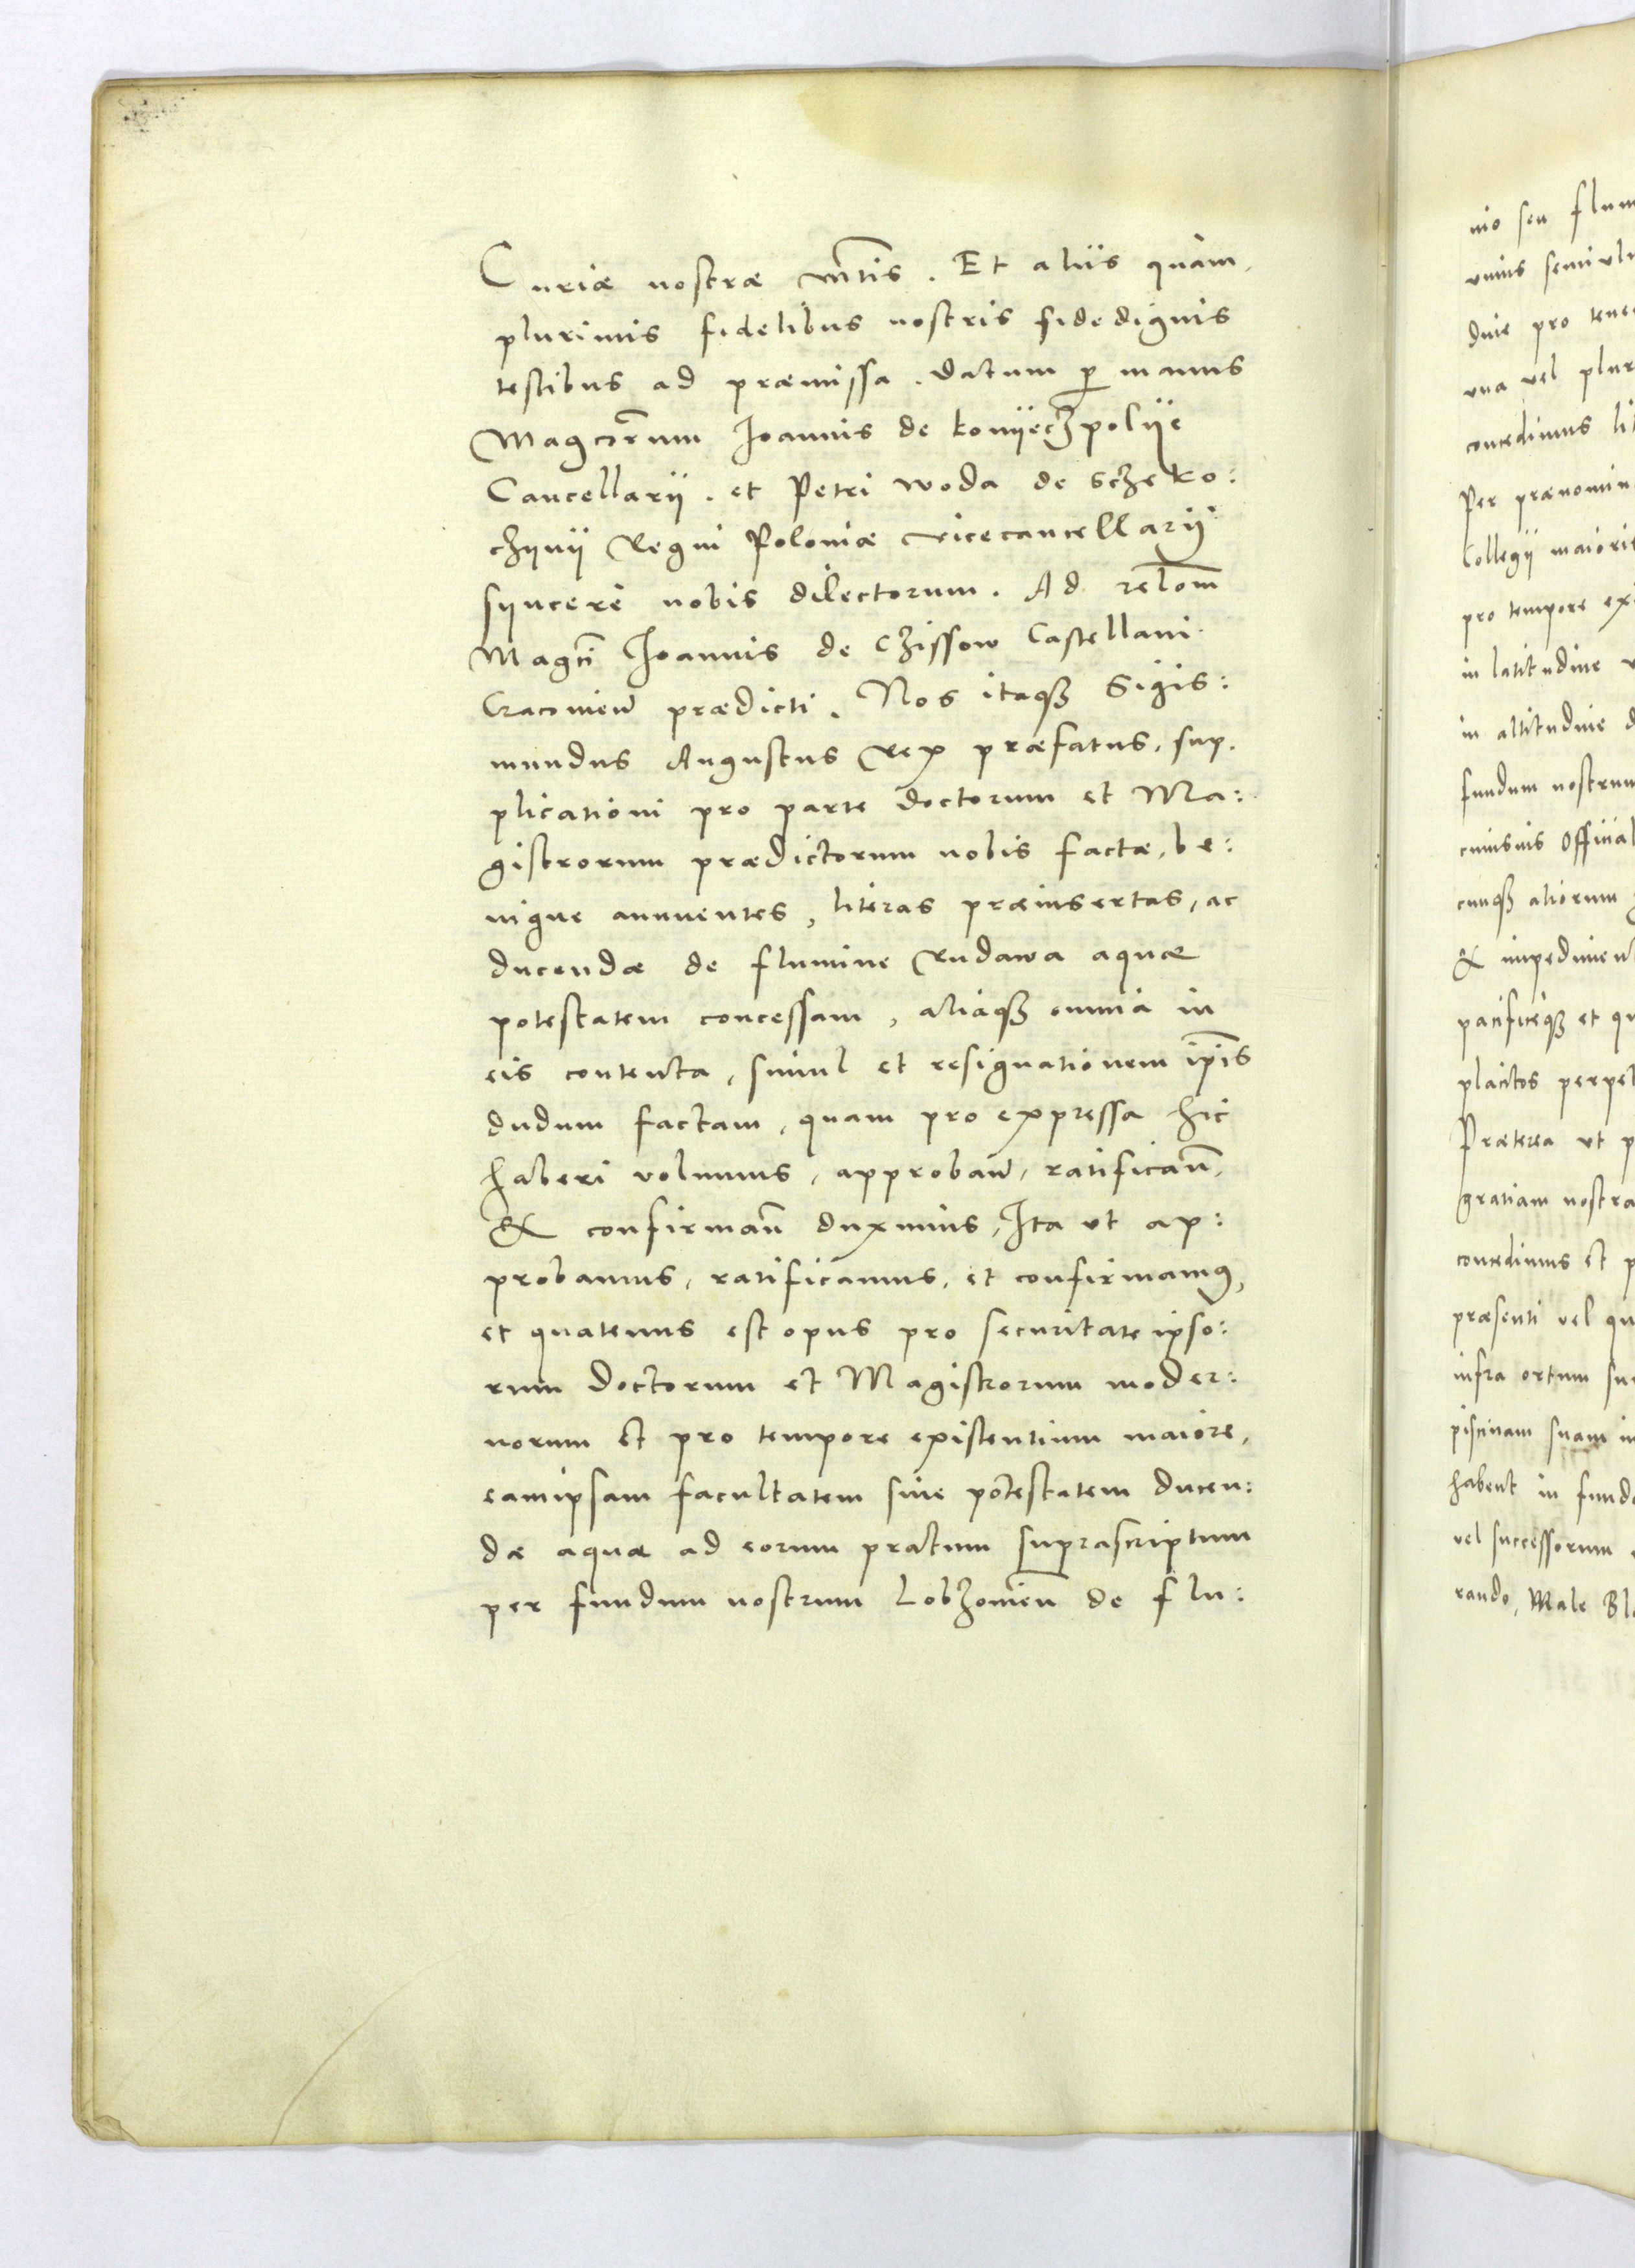 Curiæ nostræ . Et aliis quam,
plurimis fidelibus nostris fidedignis
testibus ad præmissa . Datum p̱ manus
Magcorum̃ Ioannis de Konyeczpolye
Cancellarij . et Petri Woda de Sczeko:
czyny Regni Poloniæ vicecancellarij
syncerè nobis dilectorum. Ad relõm
Magci̅ Ioannis de Czissow Castellani
Cracovien̄ prædicti. Nos itaqȝ Sigis:
mundus Augustus Rex præfatus, sup.
plicationi pro parte Doctorum et Ma:
gistrorum prædictorum nobis factæ, be:
nigne annuentes, literas præinsertas, ac
ducendæ de flumine Rudawa aquæ
potestatem concessam, aliaqȝ omnia in
eis contenta, simul et resignationem ip̅is
dudum factam, quam pro expressa hic
haberi volumus, approban̄, ratifican̄,
& confirman̄ duximus, Ita ut ap:
probamus, ratificamus, et confirmamꝯ,
et quatenus est opus pro securitate ipso:
rum Doctorum et Magistrorum moder:
norum et pro tempore existentium maiore,
eamipsam facultatem sive potestatem ducen:
dæ aquæ ad eorum pratum suprascriptum
per fundum nostrum Lobzovien̄ de flu:
nio seu flum
unius semiuln
una vel plur
concedimus lit
Per prænomin
Collegij maioris
pro tempore exi
in latitudine
in altitudine d
fundum nostrum
cuiusvis Official
cunqȝ aliorum
& impedimen
pacificeqȝ et qu
placitos perpet
Præterea ut p
gratiam nostra
concedimus et p
præsenti vel qu
infra ortum su
piscinam suam in
habent in fundo
vel successorum
rando, Male Bl